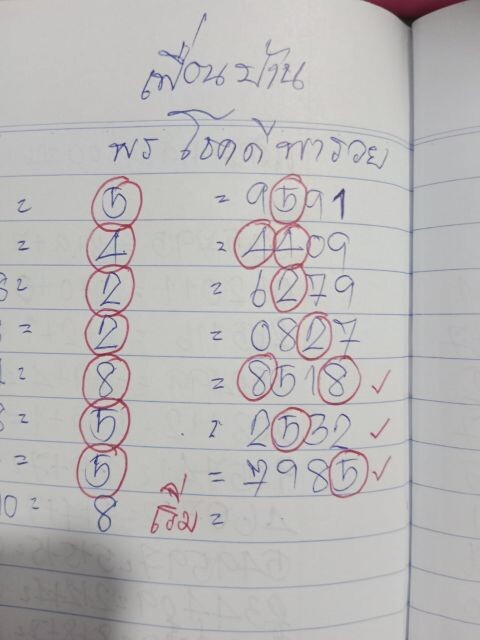 เพื่อนบ้าน
พร โชคดี พารวย
= 5 = 9591
= 4 = 4409
8= 2 = 6279
= 2 = 0827
= 8 = 8518 ✓
8= 5 = 2532 ✓
= 5 = 7985 ✓
10= 8 เริ่ม =